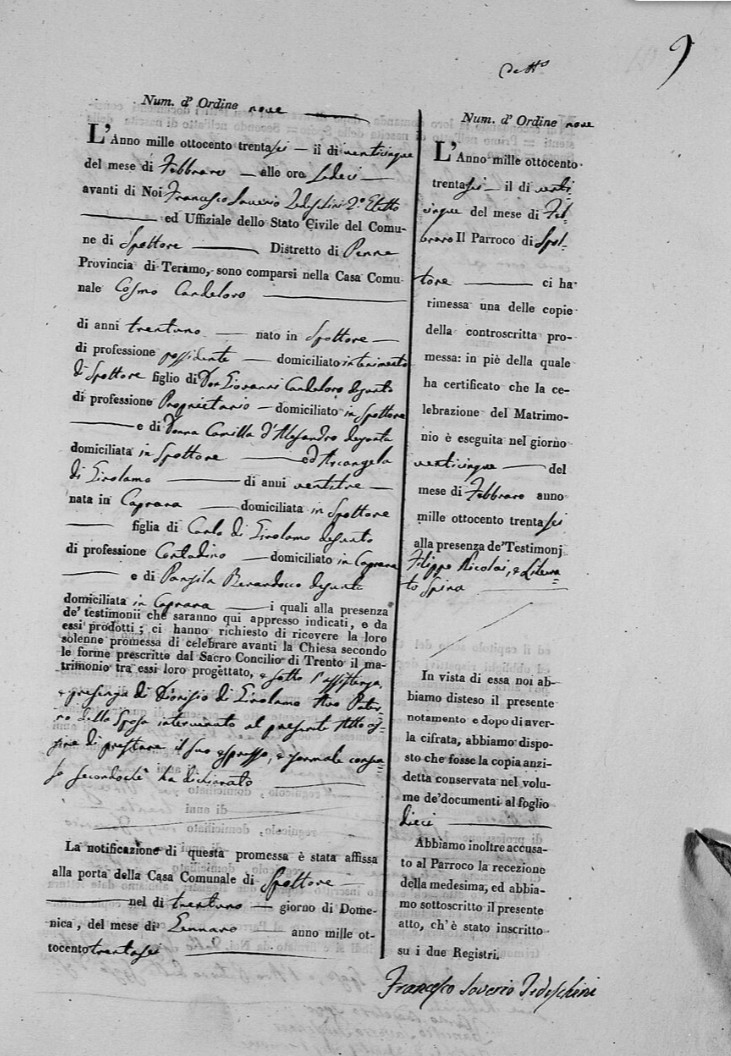 9
Num. d' Ordine nove
L'Anno mille ottocento trentasei — il di venticinque
del mese di Febbraro — alle ore sedeci —
avanti di Noi Francesco Saverio Tedeschini 2º Eletto
ed Uffiziale dello Stato Civile del Comu-
ne di Spoltore — Distretto di Penne
Provincia di Teramo, sono comparsi nella Casa Comu-
nale Cosmo Candeloro
di anni trentuno — nato in Spoltore —
di professione possidente — domiciliato
di Spoltore figlio di Don Giovanni Candeloro defunto
di professione Proprietario — domiciliato in Spoltore
— e di Donna Camilla d'Alesandro defunta
domiciliata in Spoltore — ed Arcangela
di Girolamo — di anni ventitre —
nata in Caprara — domiciliata in Spoltore
— figlia di Carlo di Girolamo defunto
di professione Contadino — domiciliato in Caprara
— e di Panfila Berardocco defunta
domiciliata in Caprara — i quali alla presenza
de' testimonii che saranno qui appresso indicati, e da
essi prodotti; ci hanno richiesto di ricevere la loro
solenne promessa di celebrare avanti la Chiesa secondo
le forme prescritte dal Sacro Concilio di Trento il ma-
trimonio tra essi loro progettato, e sotto l'assistenza,
e presenza di Dionisio di Girolamo Avo Pater-
no della Sposa intervenuto al presente Atto af-
fine di prestare il suo espresso, e formale consen-
so secondochè ha dichiarato
La notificazione di questa promessa è stata affissa
alla porta della Casa Comunale di Spoltore
— nel dì trentuno — giorno di Dome-
nica, del mese di Gennaro anno mille ot-
tocento trentasei
Num. d' Ordine nove
L'Anno mille ottocento
trentasei — il di venti
cinque del mese di Feb-
braro Il Parroco di Spol-
tore — ci ha
rimessa una delle copie
della controscritta pro-
messa: in piè della quale
ha certificato che la ce-
lebrazione del Matrimo-
nio è eseguita nel giorno
venticinque — del
mese di Febbraro anno
mille ottocento trentasei
alla presenza de' Testimonj
Filippo Nicolai, e Libera-
to Spina
In vista di essa noi ab-
biamo disteso il presente
notamento e dopo di aver-
la cifrata, abbiamo dispo-
sto che fosse la copia anzi-
detta conservata nel volu-
me de' documenti al foglio
dieci
Abbiamo inoltre accusa-
to al Parroco la recezione
della medesima, ed abbia-
mo sottoscritto il presente
atto, ch'è stato inscritto
su i due Registri.
Francesco Saverio Tedeschini